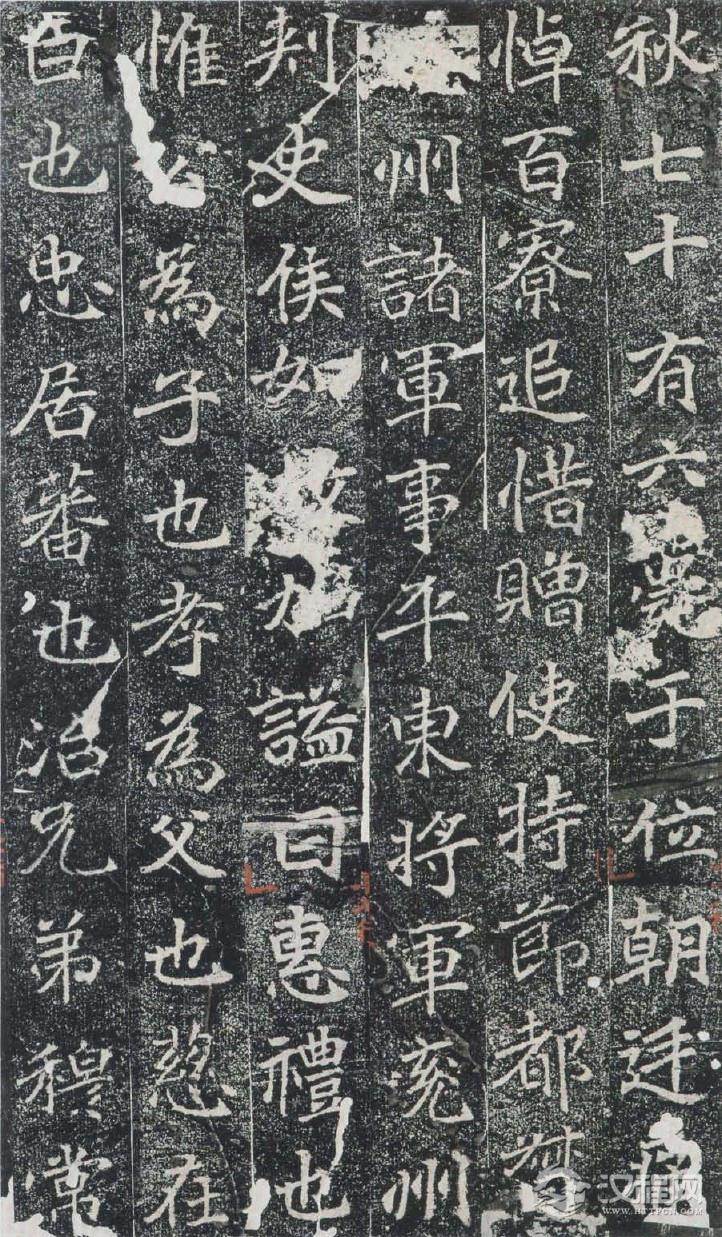 秋七十有六薨于位朝廷
悼百寮追惜贈使持節都督
州諸軍事平東將軍兗州
刾史侯如故加謚曰惠禮也
惟公為子也孝為父也慈在
臣也忠居蕃也治兄弟穆常
汉程网
WWW.HTTPCN.COM